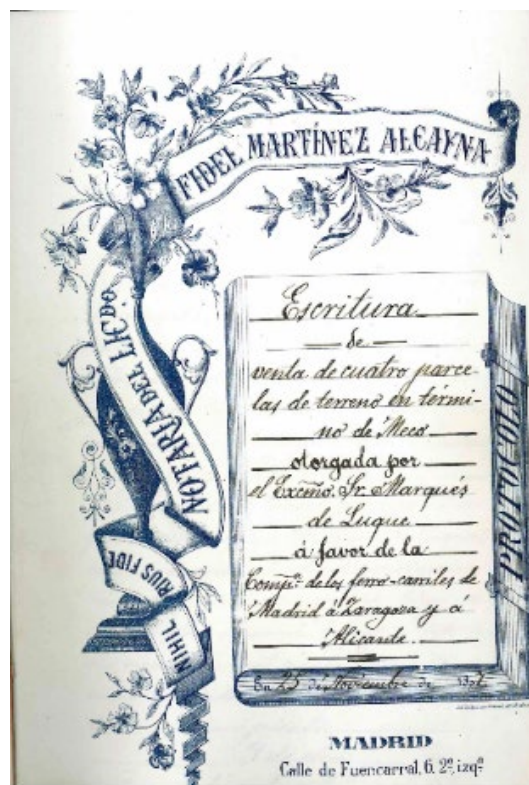 FIDEL MARTÍNEZ ALCAYNA
NOTARÍA DEL LICDO
NIHIL
PRIUS FIDE
PROTOCOLO
Escritura
de
venta de cuatro parce-
las de terreno en térmi-
no de Meco
otorgada por
el Excmo. Sr. Marqués
de Luque
á favor de la
Compª de los ferro-carriles de
Madrid á Zaragoza y á
Alicante.
En 25 de Noviembre de
MADRID
Calle de Fuencarral, 6. 2º, izqª